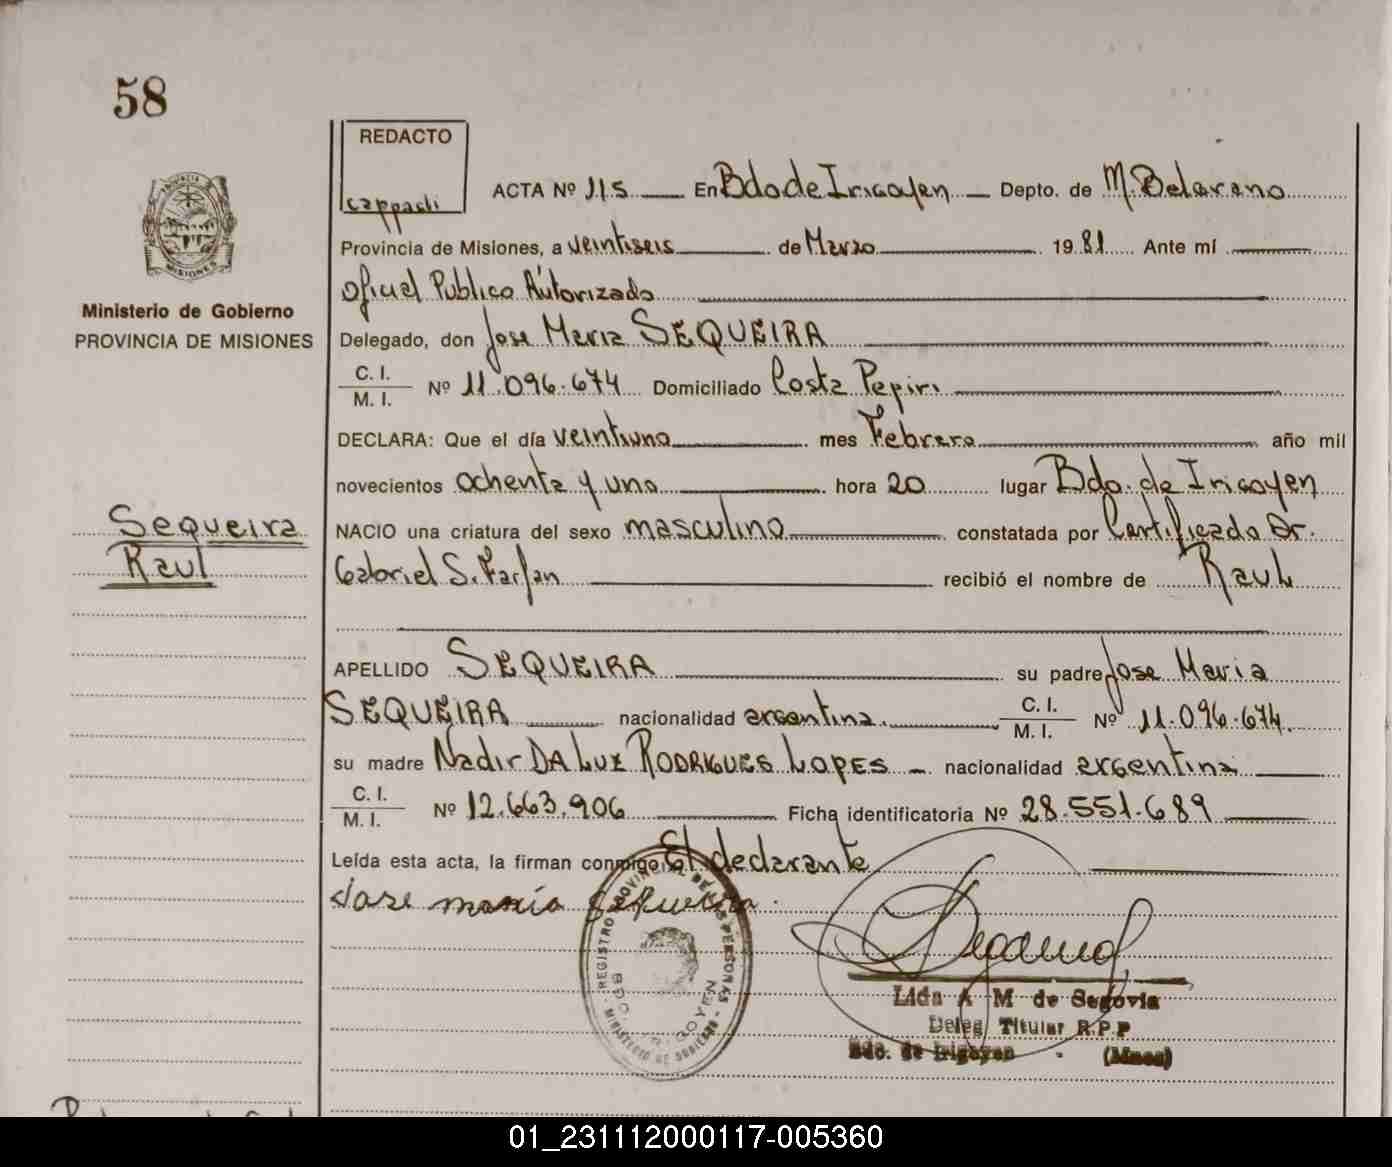 58
REDACTO
cappacli
ACTA Nº 115 En Bdo de Irigoyen Depto. de M. Belgrano
PROVINCIA
MISIONES
Provincia de Misiones, a veintiseis de Marzo 1981 Ante mí
Oficial Publico Autorizado
Ministerio de Gobierno
PROVINCIA DE MISIONES
Delegado, don Jose Maria SEQUEIRA
C. I.
M. I. Nº 11.096.674 Domiciliado Costa Pepiri
DECLARA: Que el día veintiuno mes Febrero año mil
novecientos ochenta y uno hora 20 lugar Bdo. de Irigoyen
Sequeira
Raul
NACIO una criatura del sexo masculino constatada por Certificado Dr.
Gabriel S. Farfan recibió el nombre de Raul
APELLIDO SEQUEIRA su padre Jose Maria
SEQUEIRA nacionalidad argentina. C. I.
M. I. Nº 11.096.674.
su madre Nadir DA LUZ RODRIGUES LOPES nacionalidad argentina
C. I.
M. I. Nº 12.663.906 Ficha identificatoria Nº 28.551.689
Leída esta acta, la firman conmigo, El declarante
Jose maria Sequeira.
REGISTRO PROVINCIAL DE LAS PERSONAS
BDO. IRIGOYEN
MINISTERIO DE GOBIERNO
Lida A M de Segovia
Deleg Titular R.P.P
Bdo. de Irigoyen - (Mnes)
01_231112000117-005360